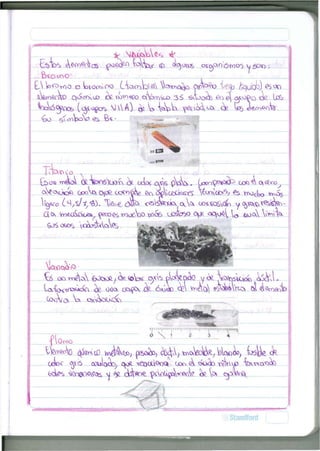 * Variables *
Estos elementos pueden faltar en algunos organismos y son:
Bromo
El bromo o bromino (también llamado antaño fuego líquido) es un
elemento químico de número atómico 35 situado en el grupo de los
halógenos (grupos VII A) de la tabla periódica de los elementos.
Su símbolo es Br.
Titanio
Es un metal de transición de color gris plata. Comparado con el acero,
aleación con la que compite en aplicaciones técnicas, es mucho más
ligero (4,5/7,8). Tiene alta resistencia a la corrosión y gran resisten-
cia mecánica, pero es mucho más costoso que aquel, lo cual limita
sus usos industriales.
Vanadio
Es un metal suave, de color gris plateado y de transición dúctil.
La formación de una capa de óxido del metal estabiliza al elemento
contra la oxidación.
0 1 2 3 4
Plomo
Elemento químico metálico, pesado, dúctil, maleable, blando, fusible de
color gris azulado, que reacciona con el ácido nítrico formando
sales venenosas y se obtiene principalmente de la galena
Standford